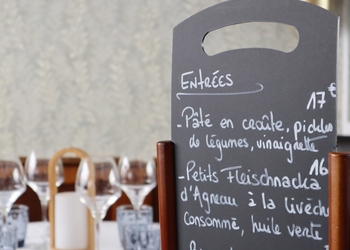 ENTRÉES
17 €
- Pâté en croûte, pickles
de légumes, vinaigrette
16
- Petits Fleischnacka
d'Agneau à la livèch
consommé, huile vert